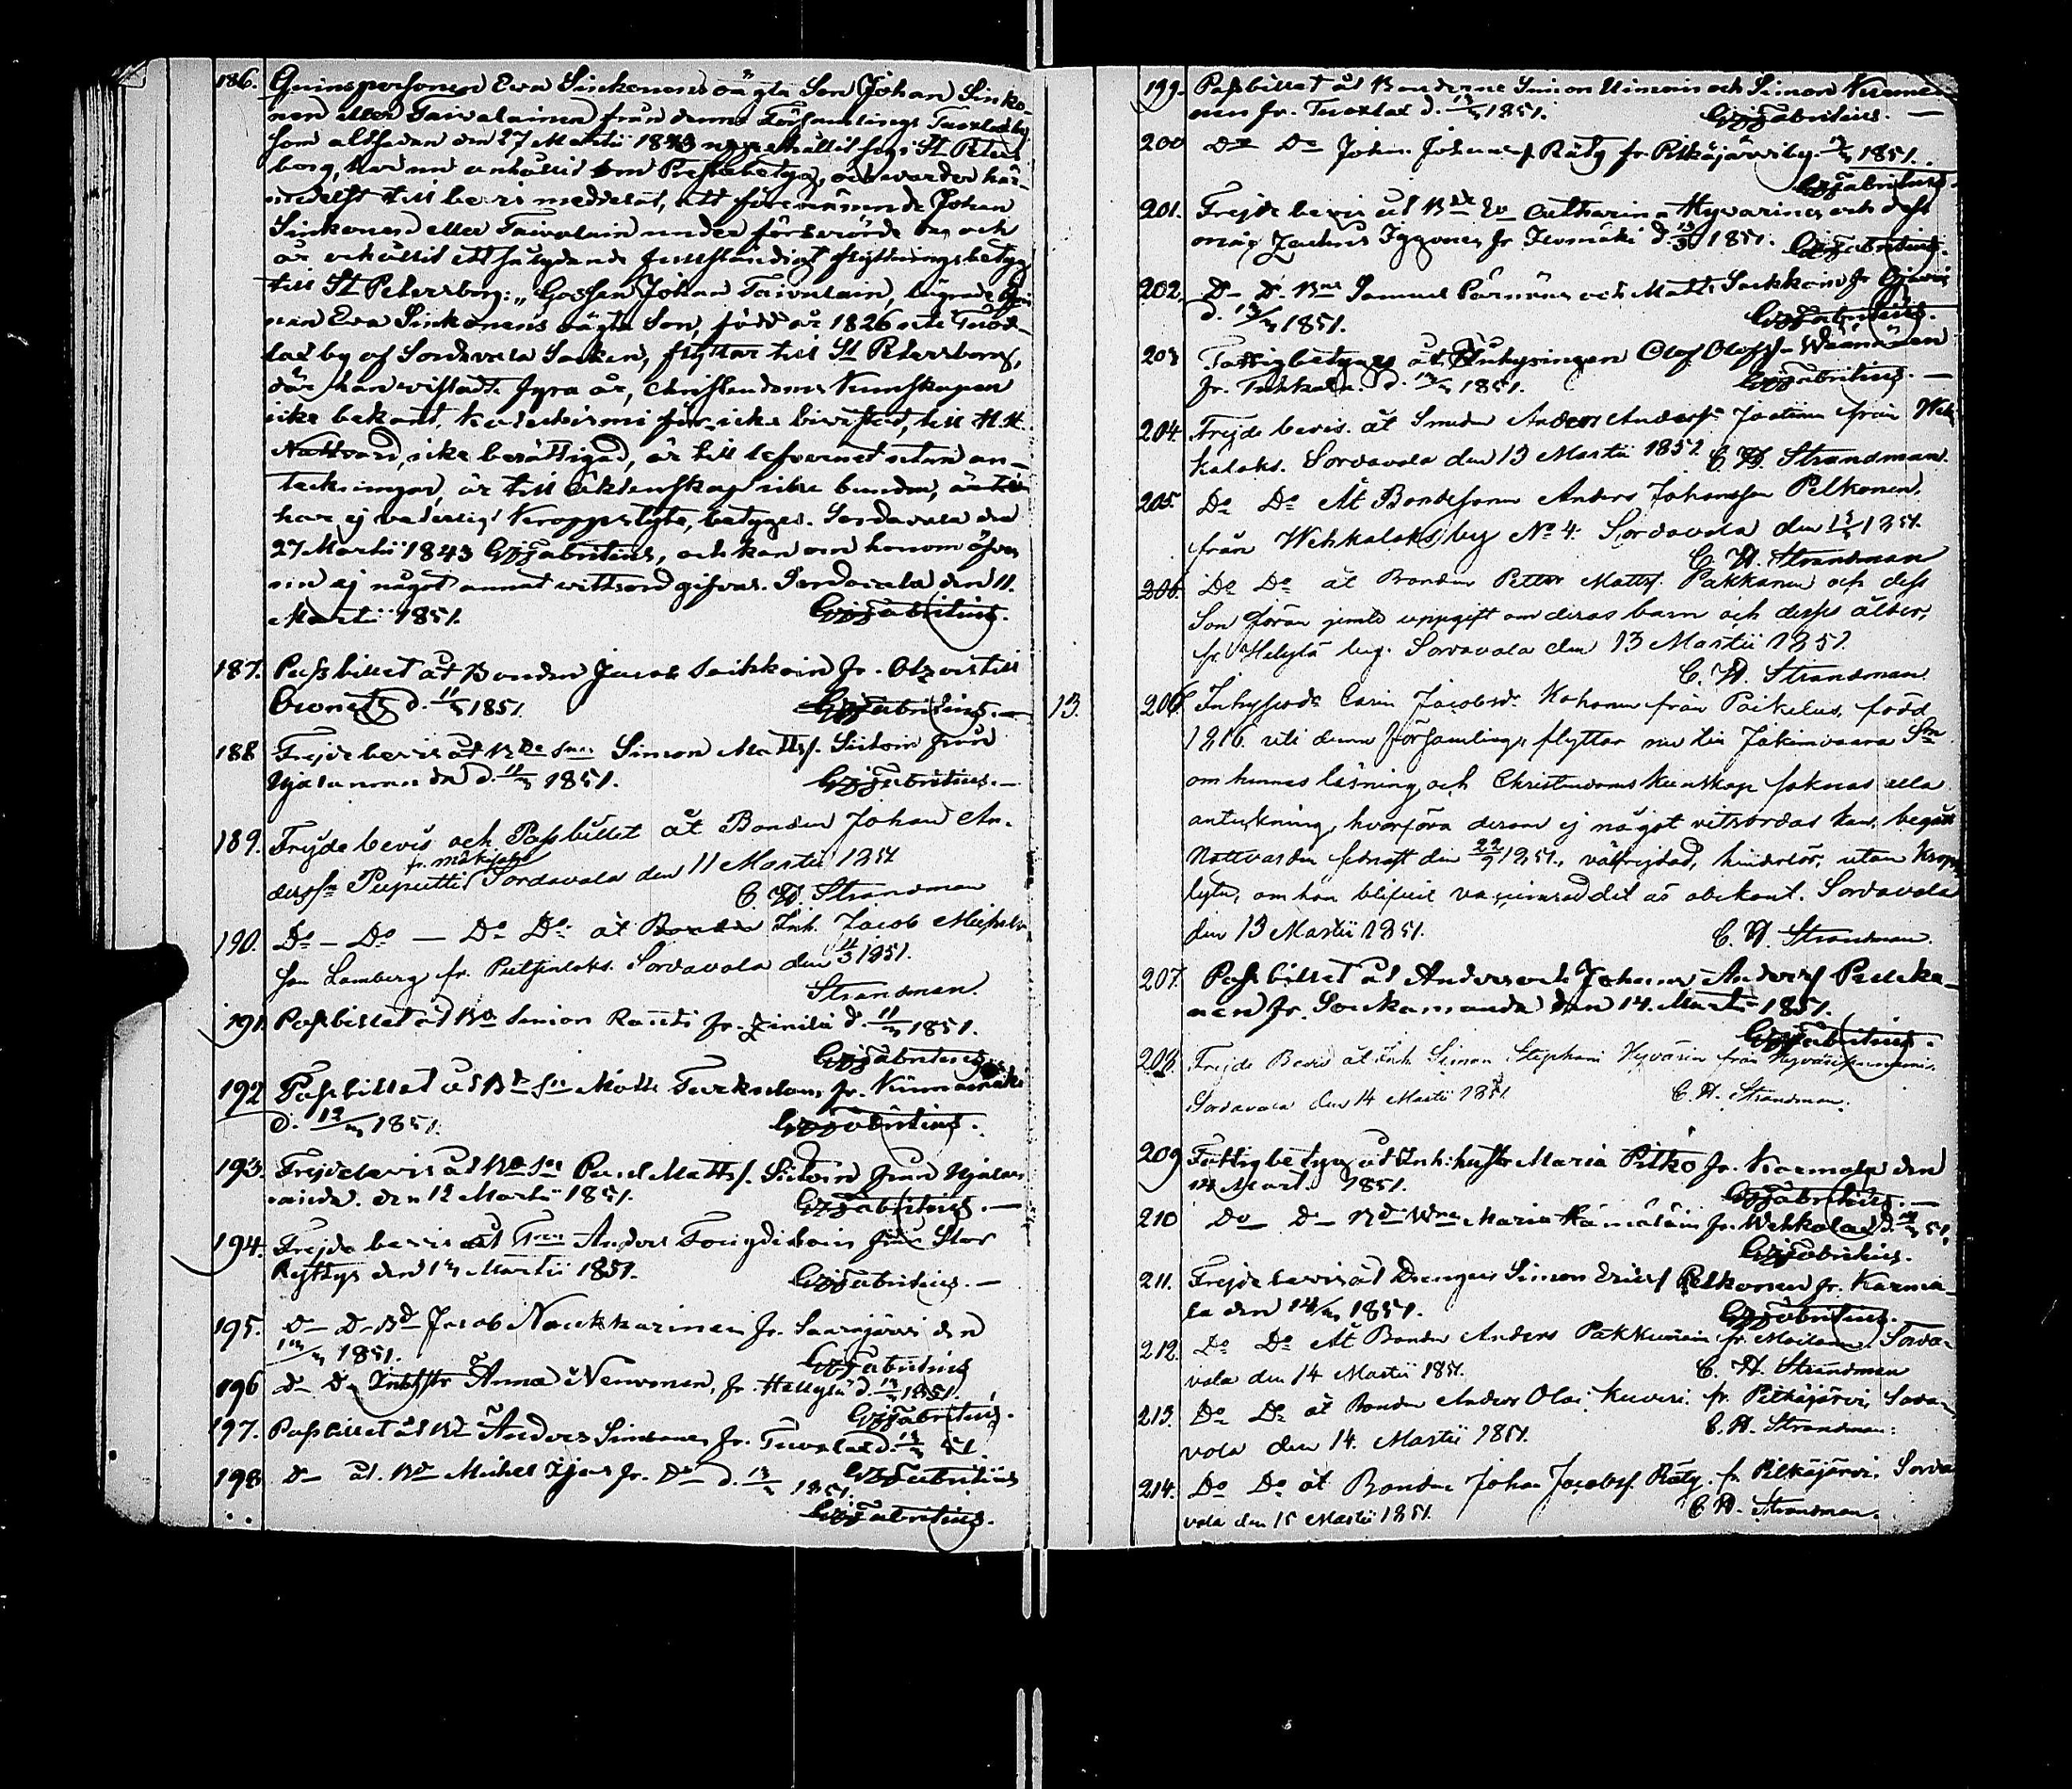 186. Qvinspersonen Eva Sinkonens oägta Son Johan Sinko-
nen eller Taivalainen från denna Församlings Tuoxlax by
som altsedan den 27 Martii 1843 uppehållit sig i St Peters
borg, har nu anhållit om Prestbetyg, och varder här-
medelst till bevis meddelat, att förenämnde Johan
Sinkonen eller Taivalain under förberörde dag och
år erhållit ett så lydande fullständigt flyttningsbetyg
till St Petersborg: „Gossen Johan Taivalain, lägrade Qvin
nan Eva Sinkonens oägta Son, född år 1826 uti Tuox-
lax by af Sordavala Socken, flyttar till St Petersborg,
där han vistats fyra år, Christendoms Kunskapen
icke bekant, Katechismi förhör icke bivistat, till H. H.
Nattvard icke berättigad, är till lefvernet utan an-
teckningar, är till äktenskap icke bunden,
har ej vederlig Kroppslyte, betygas. Sordavala den
27 Martii 1843 Fabritius, och kan om honom äfven
nu ej något annat wittsord gifvas. Sordavala den 11.
Martii 1851. Fabritius.
187. Passbillet åt Bonden Jacob Saikkoin fr. till
d. 11/3 1851. Fabritius.
188 Frejdebevis åt Bde Sn Simon Matts. Siitoin från
d. 11/3 1851. Fabritius.
189. Frejdebevis och Passbillet åt Bonden Johan An-
derss. Puputti Sordavala den 11 Martii 1851
C. H. Strandman
190. Do - Do - Do Do åt Inh. Jacob Michels-
son Lamberg fr. Sordavala den 11/3 1851.
Strandman.
191. Passbillet åt Bd Simon Rautio fr. d. 11/3 1851.
Fabritius
192 Passbillet åt Bde Sn Matts fr.
d. 12/3 1851. Fabritius.
193. Frejdebevis åt Bde Sn Paul Matts. Siitoin från
den 12 Martii 1851. Fabritius.
194. Frejdebevis åt Anders från Stor
Rytty den 13 Martii 1851. Fabritius.
195. Do Do Bd Jacob Naukkarinen fr. Saarajärvi den
13/3 1851. Fabritius
196 Do Do Anna Nenonen, fr. Helylä d. 13/3 1851.
Fabritius.
197. Passbillet åt Bd Anders Simonen fr. Tuoxlax d. 13/3 51.
Fabritius
198 Do åt Bd Michel Ijäs fr. Do d. 13/3 1851.
Fabritius.
13.
199. Passbillet åt Bönderne Simon och Simon
fr. Tuoxlax d. 13/3 1851. Fabritius.
200 Do Do Johan Johans. Räty fr. Pitkäjärvi by. 13/3 1851.
Fabritius.
201. Frejdebevis åt Catharina Hyvärinen och dess
måg fr. d. 13/3 1851. Fabritius.
202. Do Do Samuel Pärnänen och Matts Saikkoin fr.
d. 13/3 1851. Fabritius.
203 Fattigbetyg åt Inhysingen Olof Olofs. Wäänänen
fr. d. 13/3 1851. Fabritius.
204. Frejdebevis åt Smeden Anders Anderss. från Weh-
kalaks. Sordavala den 13 Martii 1851 C. H. Strandman.
205. Do Do Åt Bondesonen Anders Johansson Pelkonen,
från Wehkalaks by No 4. Sordavala den 13/3 1851.
C. H. Strandman
206. Do Do åt Bonden Petter Matts. Pakkanen och dess
Son Göran jemte uppgift om deras barn och dessas ålder,
fr. Helylä by. Sordavala den 13 Martii 1851
C. H. Strandman
206. Inhyses Carin Jacobsdr. Kohonen från Paikelus, född
1816 uti denna församling, flyttar nu till Jakimvaara Sn
om hennes läsning och Christendoms kunskap saknas alla
anteckning, hvarföre derom ej något vitsordas kan, begått
Nattvarden sednast den 22/2 1851, välfrejdad, hinderlös, utan kropps
lyte, om hon blifvit vaccinerad det är obekant. Sordavala
den 13 Martii 1851. C. H. Strandman.
207. Passbillet åt Anders och Johan Anders.
fr. den 14. Martii 1851.
Fabritius.
208. Frejde Bevis åt Inh. Simon Stephani Hyvärin från
Sordavala den 14 Martii 1851 C. H. Strandman.
209 Fattigbetyg åt Inh. hustr. Maria Pitko fr. Karmala den
14 Mart. 1851. Fabritius.
210 Do Do Maria Hämäläin fr. Wehkalax d. 14/3 51.
Fabritius.
211. Frejdebevis åt Drengen Simon Erics. Pelkonen fr. Karma-
la den 14/3 1851. Fabritius.
212. Do Do Åt Bonden Anders Pakkanen fr. Sorda-
vala den 14 Martii 1851. C. H. Strandman
213. Do Do åt Bonden Anders Olai fr. Pitkäjärvi. Sorda-
vala den 14. Martii 1851. C. H. Strandman.
214. Do Do åt Bonden Johan Jacobs. Räty fr. Pitkäjärvi. Sorda
vala den 15 Martii 1851. C. H. Strandman.